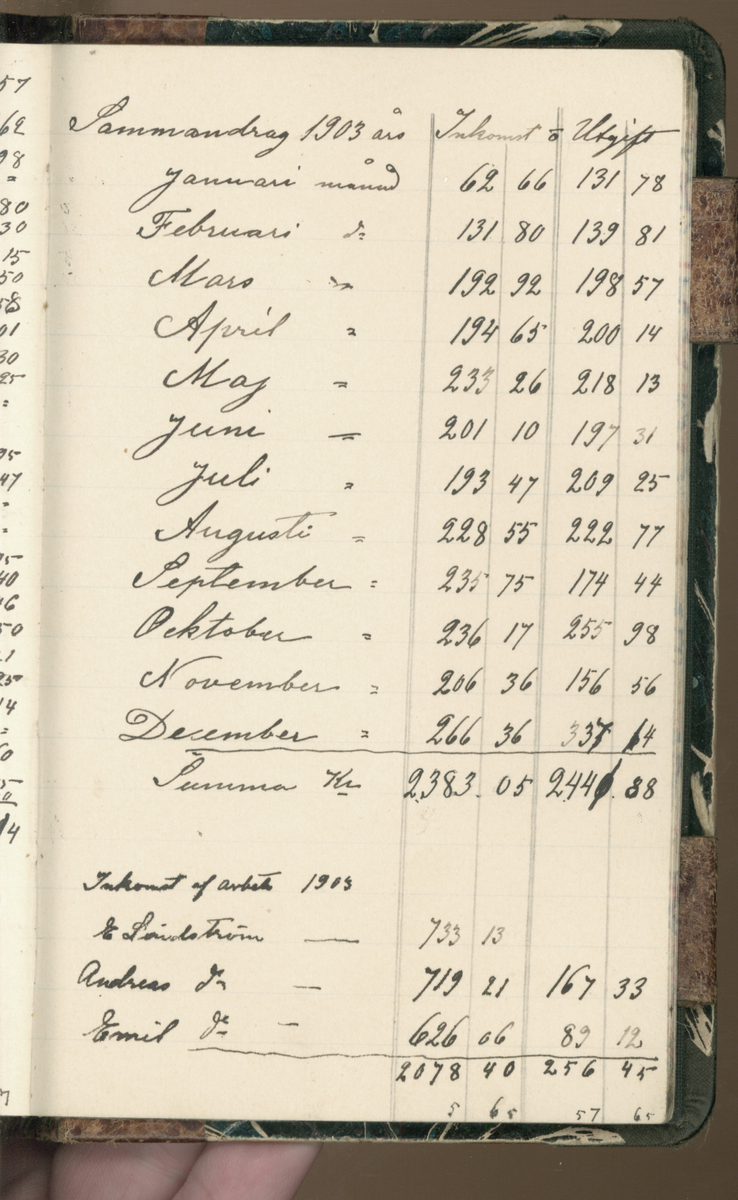 57
62
98
"
80
30
15
50
58
01
30
25
"
95
47
"
"
40
16
50
21
25
14
"
60
14
Sammandrag 1903 års Inkomst o Utgift
Januari månad 62 66 131 78
Februari do 131 80 139 81
Mars " 192 92 198 57
April " 194 65 200 14
Maj " 233 26 218 13
Juni " 201 10 197 31
Juli " 193 47 209 25
Augusti " 228 55 222 77
September " 235 75 174 44
Ocktober " 236 17 255 98
November " 206 36 156 56
December " 266 36 337 14
Summa Kr 2383.05 2441.88
Inkomst af arbete 1903
E Lindström — 733 13
Andreas do — 719 21 167 33
Emil do — 626 06 89 12
2078 40 256 45
5 65 57 65